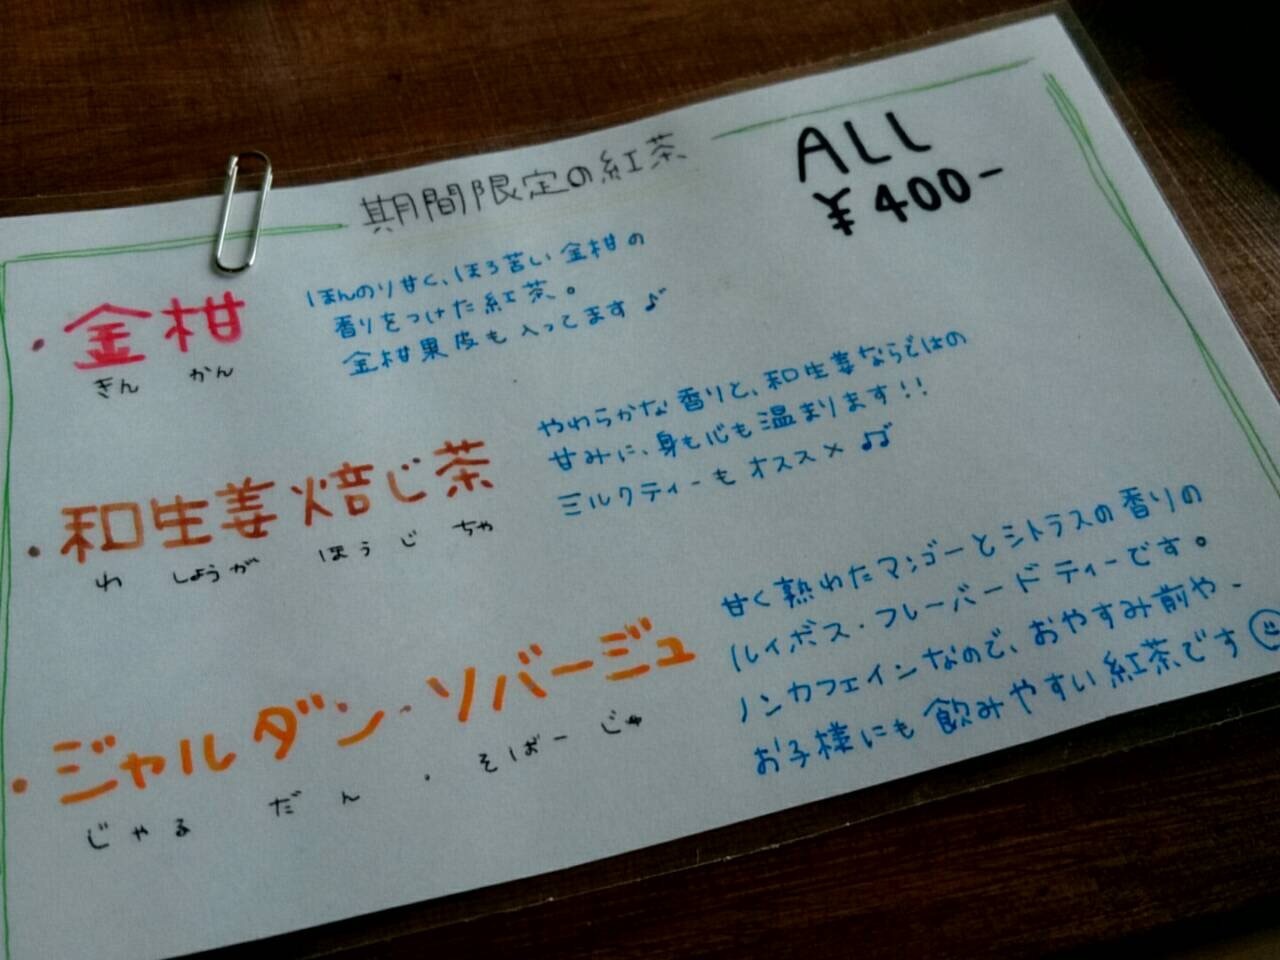 期間限定の紅茶
ALL
¥400-
・金柑
きん かん
ほんのり甘く、ほろ苦い金柑の
香りをつけた紅茶。
金柑果皮も入ってます♪
・和生姜焙じ茶
わ しょうが ほうじ ちゃ
やわらかな香りと、和生姜ならではの
甘みに、身も心も温まります!!
ミルクティーもオススメ♫
・ジャルダン・ソバージュ
じゃる だん・そばーじゅ
甘く熟れたマンゴーとシトラスの香りの
ルイボス・フレーバードティーです。
ノンカフェインなので、おやすみ前や、
お子様にも飲みやすい紅茶です☺